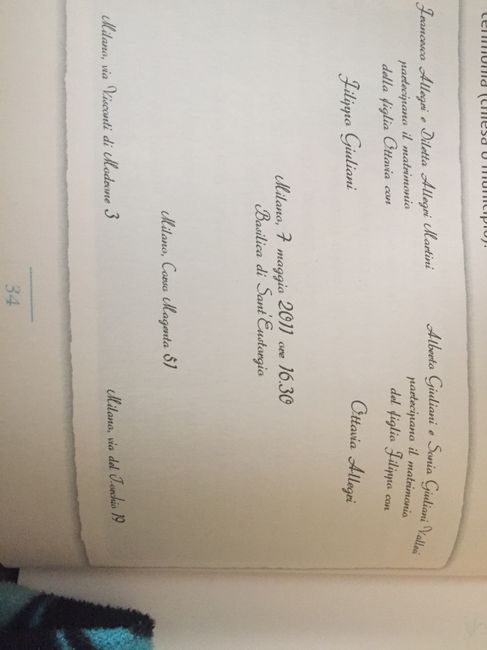 cerimonia (chiesa o municipio).
Francesco Allegri e Diletta Allegri Martini
partecipano il matrimonio
della figlia Ottavia con
Filippo Giuliani
Alberto Giuliani e Sonia Giuliani Vallesi
partecipano il matrimonio
del figlio Filippo con
Ottavia Allegri
Milano, 7 maggio 2011 ore 16.30
Basilica di Sant'Eustorgio
Milano, Corso Magenta 81
Milano, via Visconti di Modrone 3
Milano, via del Torchio 19
34